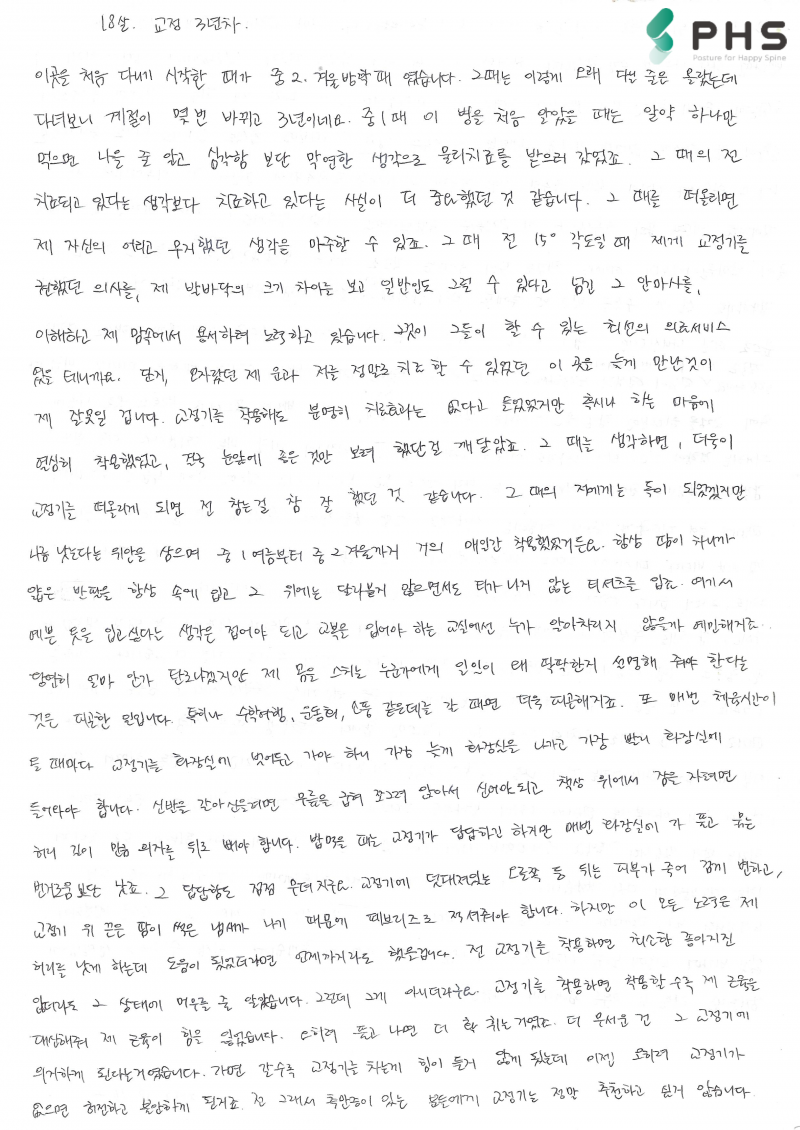 PHS
Posture for Happy Spine
18살. 교정 3년차.
이곳을 처음 다니기 시작한 때가 중2. 겨울방학때 였습니다. 그때는 이렇게 오래 다닐 줄은 몰랐는데
다녀보니 계절이 몇번 바뀌고 3년이네요. 중1때 이 병을 처음 알았을 때는 알약 하나만
먹으면 나을 줄 알고 심각함 보단 막연한 생각으로 물리치료를 받으러 갔었죠. 그 때의 전
치료되고 있다는 생각보다 치료하고 있다는 사실이 더 중요했던 것 같습니다. 그 때를 떠올리면
제 자신의 어리고 무지했던 생각을 마주할 수 있죠. 그때 전 15° 각도일 때 제게 교정기를
권했던 의사를, 제 발바닥의 크기 차이를 보고 일반인도 그럴 수 있다고 넘긴 그 안마사를,
이해하고 제 맘속에서 용서하려 노력하고 있습니다. 그것이 그들이 할 수 있는 최선의 의료서비스
였을 테니까요. 단지, 모자랐던 제 운과 저를 정말로 치료할 수 있었던 이 곳을 늦게 만난것이
제 잘못일 겁니다. 교정기를 착용해도 분명히 치료효과는 없다고 들었었지만 혹시나 하는 마음에
열심히 착용했었고, 결국 눈앞에 좋은 것만 보려 했단걸 깨달았죠. 그 때를 생각하면, 더욱이
교정기를 떠올리게 되면 전 참는걸 참 잘 했던 것 같습니다. 그 때의 저에게는 독이 되었겠지만
나름 낫는다는 위안을 삼으며 중1여름부터 중2겨울까지 거의 매일간 착용했었거든요. 항상 땀이 차니까
얇은 반팔을 항상 속에 입고 그 위에는 달라붙지 않으면서도 티가 나지 않는 티셔츠를 입죠. 여기서
예쁜 옷을 입고싶다는 생각은 접어야 되고 교복을 입어야 하는 교실에선 누가 알아차리지 않을까 예민해지죠.
당연히 얼마 안가 탄로나겠지만 제 몸을 스치는 누군가에게 일일이 왜 딱딱한지 설명해 줘야 한다는
것은 피곤한 일입니다. 특히나 수학여행, 운동회, 소풍 같은데를 갈 때면 더욱 피곤해지죠. 또 매번 체육시간이
들 때마다 교정기를 화장실에 벗어두고 가야 하니 가장 늦게 화장실을 나가고 가장 빨리 화장실에
들어와야 합니다. 신발을 갈아신을려면 무릎을 굽혀 쪼그려 앉아서 신어야되고 책상 위에서 잠을 자려면
허리 길이 만큼 의자를 뒤로 빼야 합니다. 밥먹을 때는 교정기가 답답하긴 하지만 매번 화장실에 가 풀고 묶는
번거로움보단 낫죠. 그 답답함도 점점 무뎌지구요. 교정기에 덧대져있는 오른쪽 등 뒤는 피부가 죽어 검게 변하고,
교정기 위 끈은 땀이 썩은 냄새가 나기 때문에 페브리즈로 적셔줘야 합니다. 하지만 이 모든 노력은 제
허리를 낫게 하는데 도움이 됐었더라면 언제까지라도 했을겁니다. 전 교정기를 착용하면 최소한 좋아지진
않더라도 그 상태에 머무를 줄 알았습니다. 그런데 그게 아니더라구요. 교정기를 착용하면 착용할 수록 제 근육을
대신해줘 제 근육이 힘을 잃었습니다. 오히려 풀고 나면 더 확 휘는거였죠. 더 무서운 건 그 교정기에
의지하게 된다는거였습니다. 가면 갈수록 교정기를 차는게 힘이 들지 않게 됐는데 이젠 오히려 교정기가
없으면 허전하고 불안하게 된거죠. 전 그래서 측만증이 있는 분들에게 교정기는 정말 추천하고 싶지 않습니다.